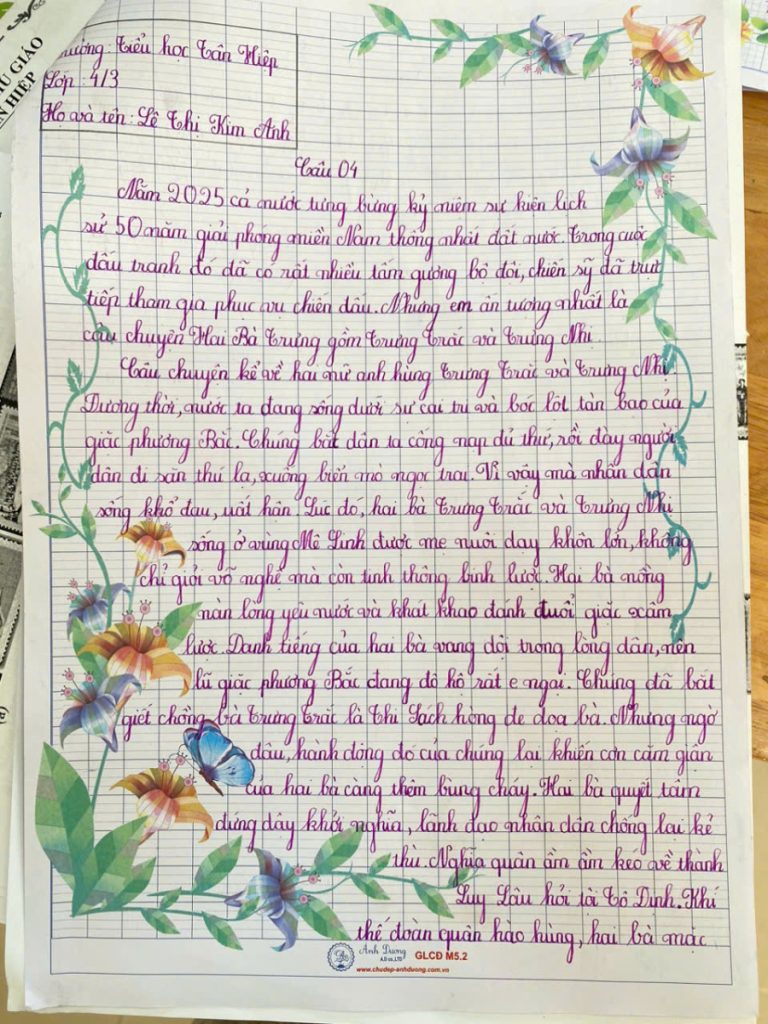 Ủ GIÁO
N HIỆP
Trường: Tiểu học Tân Hiệp
Lớp: 4/3
Họ và tên: Lê Thị Kim Anh
Câu 04
Năm 2025 cả nước tưng bừng kỷ niệm sự kiện lịch
sử 50 năm giải phóng miền Nam thống nhất đất nước. Trong cuộc
đấu tranh đó đã có rất nhiều tấm gương bộ đội, chiến sỹ đã trực
tiếp tham gia phục vụ chiến đấu. Nhưng em ấn tượng nhất là
câu chuyện Hai Bà Trưng gồm Trưng Trắc và Trưng Nhị.
Câu chuyện kể về hai nữ anh hùng Trưng Trắc và Trưng Nhị.
Dương thời, nước ta đang sống dưới sự cai trị và bóc lột tàn bạo của
giặc phương Bắc. Chúng bắt dân ta cống nạp đủ thứ, rồi đày người
dân đi săn thú lạ, xuống biển mò ngọc trai. Vì vậy mà nhân dân
sống khổ đau, uất hận. Lúc đó, hai bà Trưng Trắc và Trưng Nhị
sống ở vùng Mê Linh được mẹ nuôi dạy khôn lớn, không
chỉ giỏi võ nghệ mà còn tinh thông binh lược. Hai bà nồng
nàn lòng yêu nước và khát khao đánh đuổi giặc xâm
lược. Danh tiếng của hai bà vang dội trong lòng dân, nên
lũ giặc phương Bắc đang đô hộ rất e ngại. Chúng đã bắt
giết chồng bà Trưng Trắc là Thi Sách hòng đe dọa bà. Nhưng ngờ
đâu, hành động đó của chúng lại khiến cơn căm giận
của hai bà càng thêm bùng cháy. Hai bà quyết tâm
đứng dậy khởi nghĩa, lãnh đạo nhân dân chống lại kẻ
thù. Nghĩa quân ầm ầm kéo về thành
Luy Lâu hỏi tội Tô Định. Khí
thế đoàn quân hào hùng, hai bà mặc
Anh Dương
A.D co.,LTD
GLCĐ M5.2
www.chudep-anhduong.com.vn